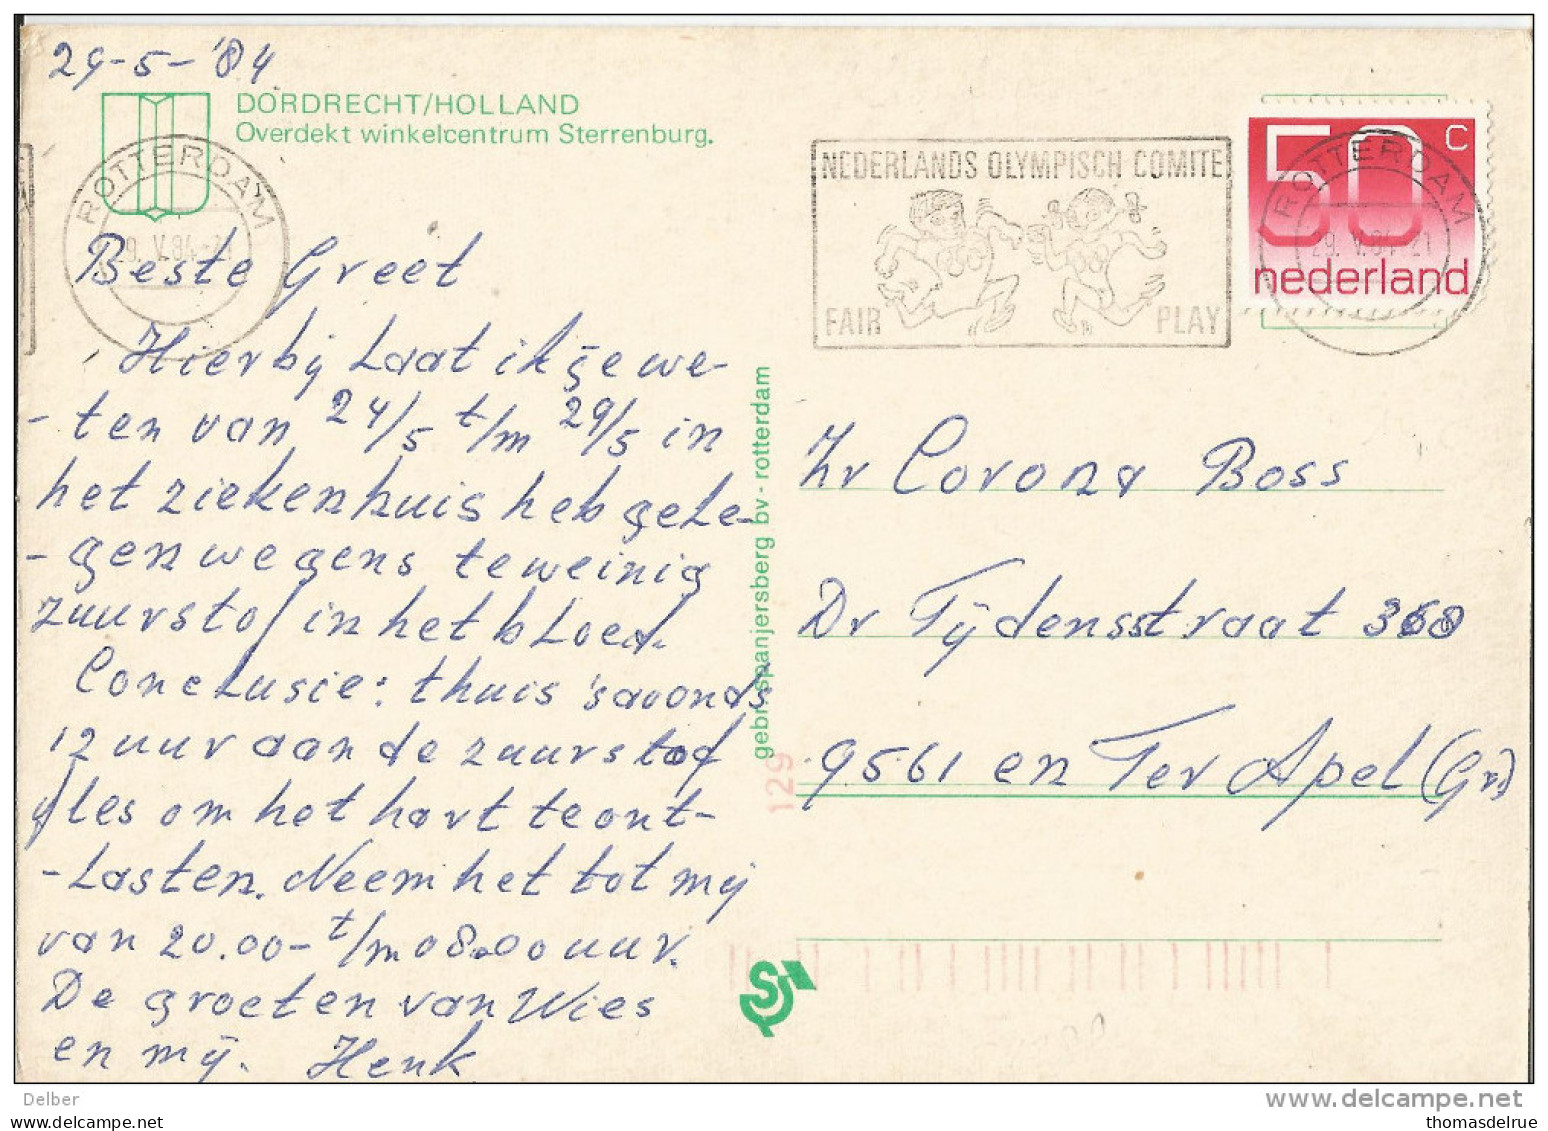 29-5-'84
DORDRECHT/HOLLAND
Overdekt winkelcentrum Sterrenburg.
ROTTERDAM
29.V.84-21
Beste Greet
Hierbij laat ik je we-
-ten van 24/5 t/m 29/5 in
het ziekenhuis heb gele-
-gen wegens teweinig
zuurstof in het bloed.
Conclusie: thuis 's avonds
12 uur aan de zuurstof
fles om het hart te ont-
-lasten. Neem het tot mij
van 20.00- t/m 08.00 uur.
De groeten van Wies
en mij. Henk
gebr. spanjersberg bv - rotterdam
129
NEDERLANDS OLYMPISCH COMITE
FAIR PLAY
50 c
nederland
ROTTERDAM
29.V.84-21
Zr Corona Boss
Dr Tijdensstraat 368
9561 en Ter Apel (Gr)
S
Delber
www.delcampe.net
https://www.delcampe.net
thomasdelrue